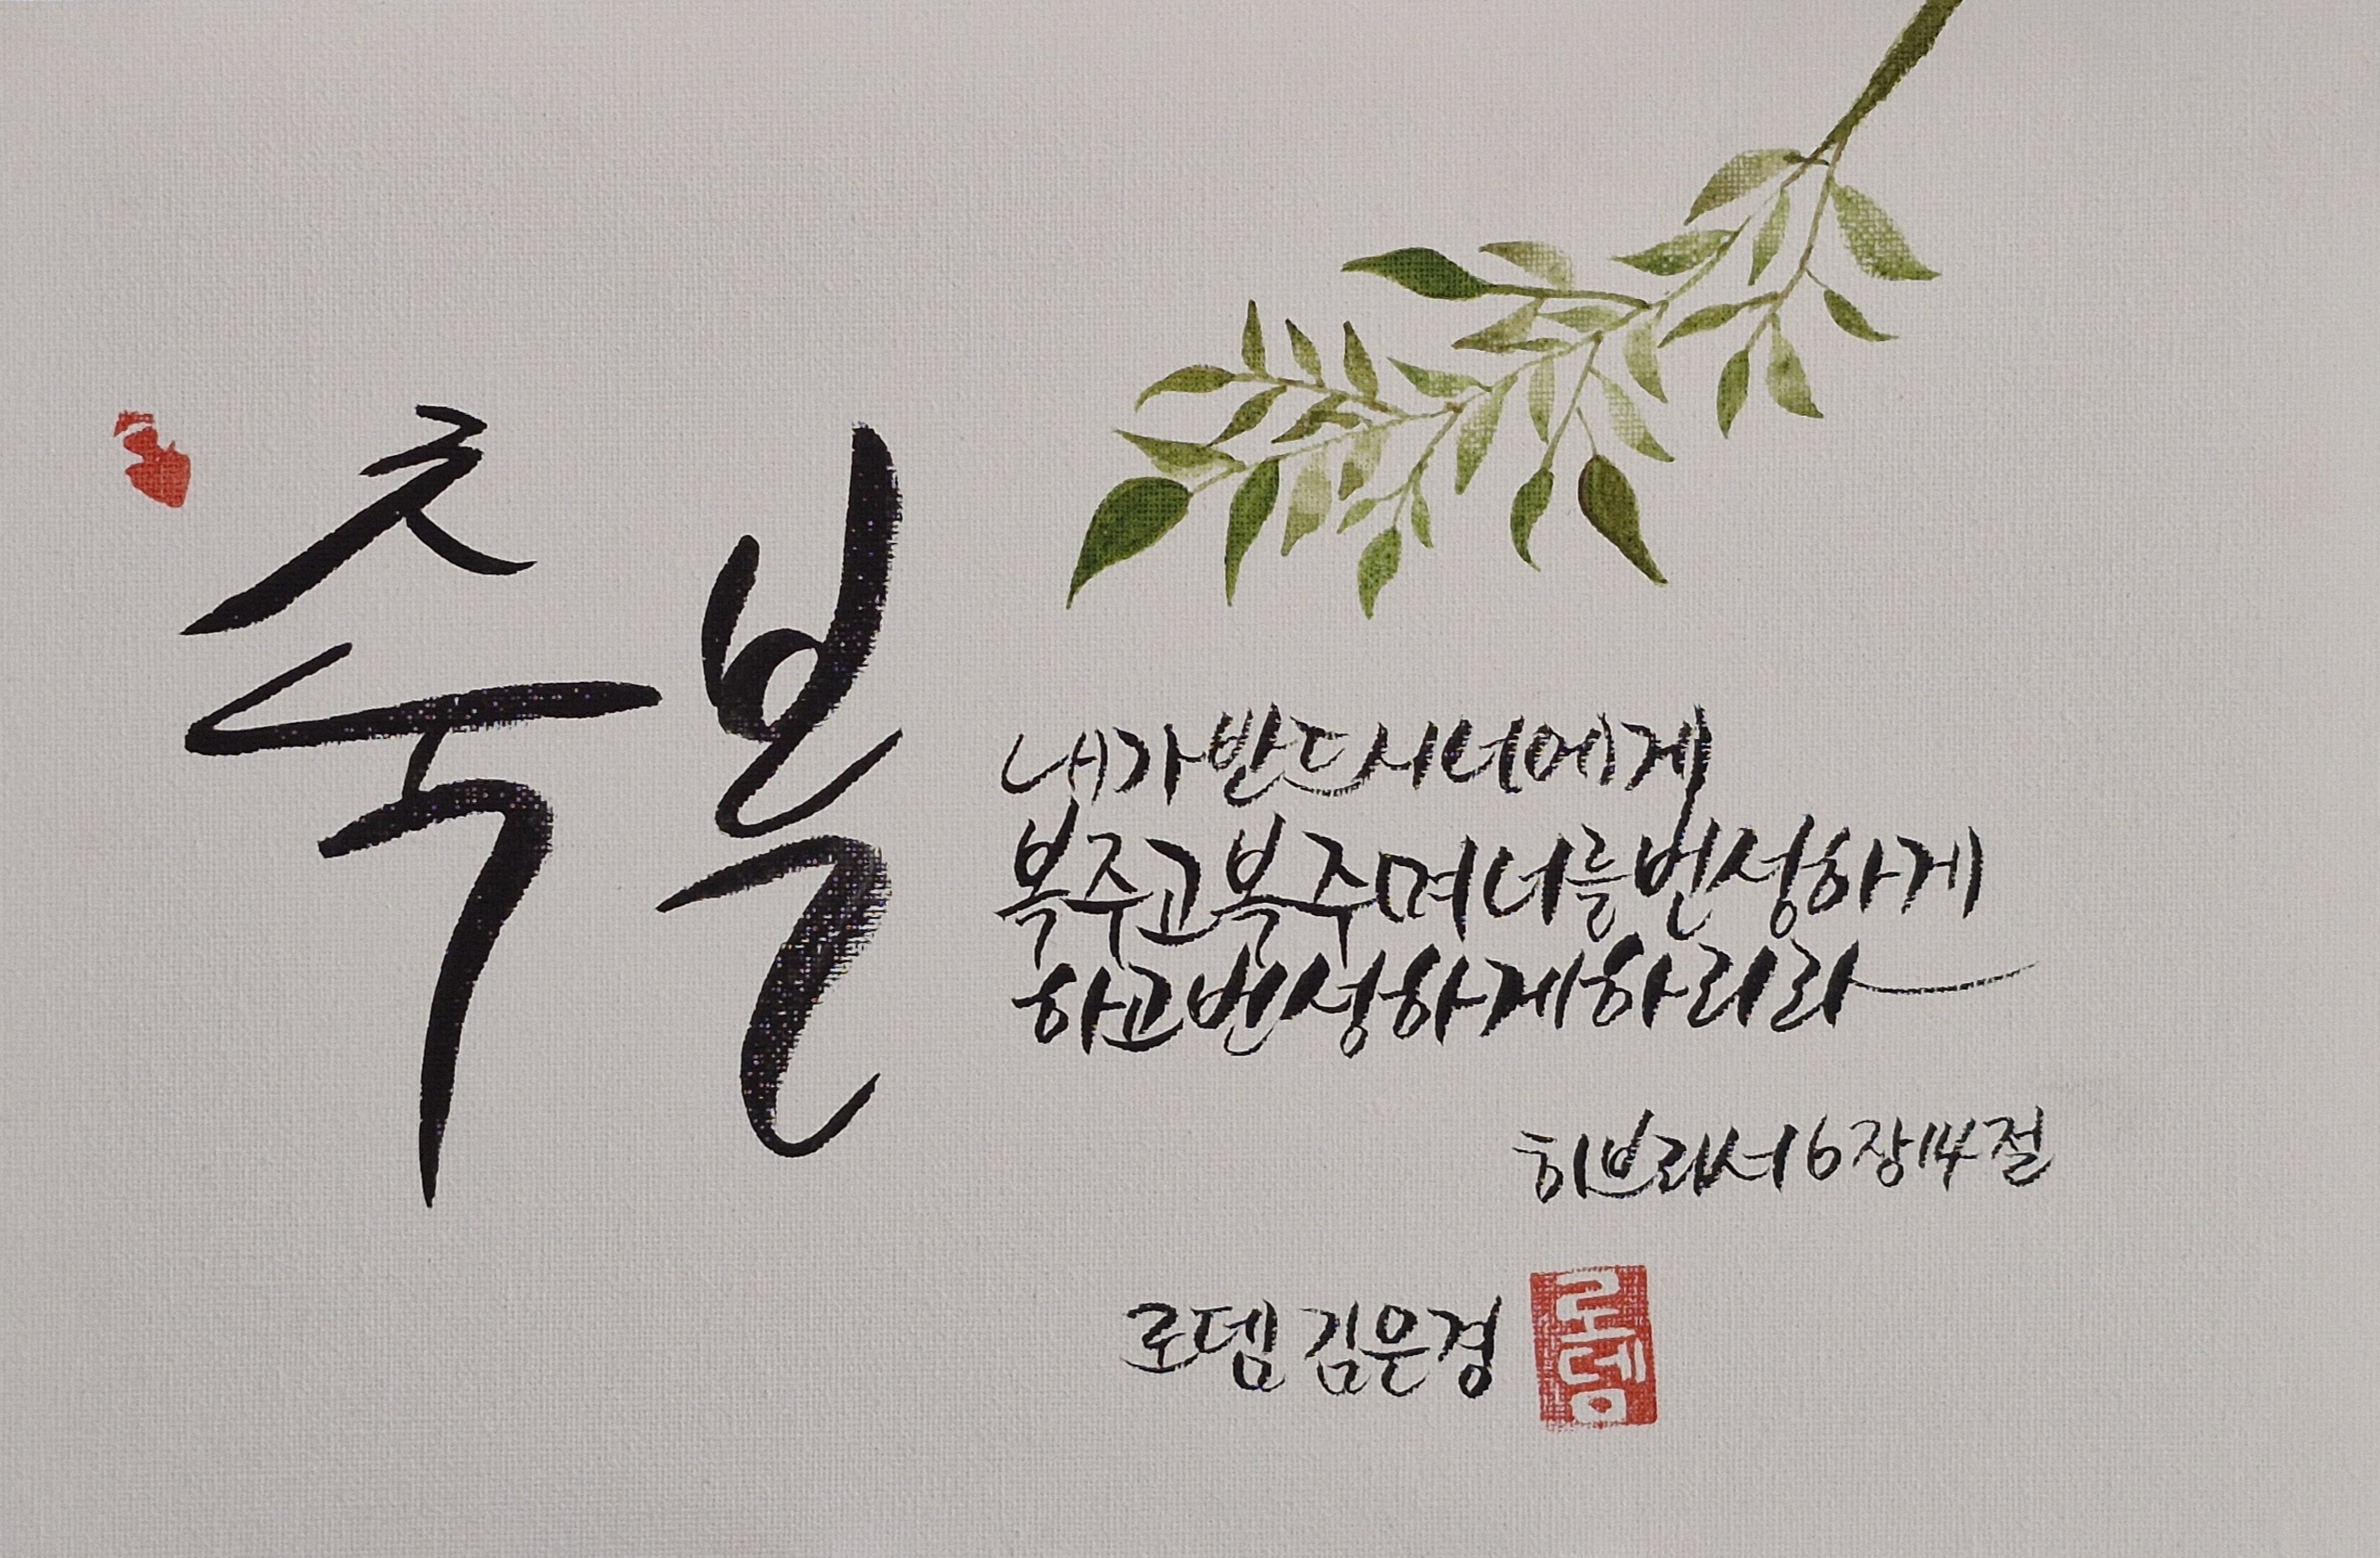 축복
내가반드시너에게
복주고복주며너를번성하게
하고번성하게하리라
히브리서6장14절
로뎀 김은경
로뎀